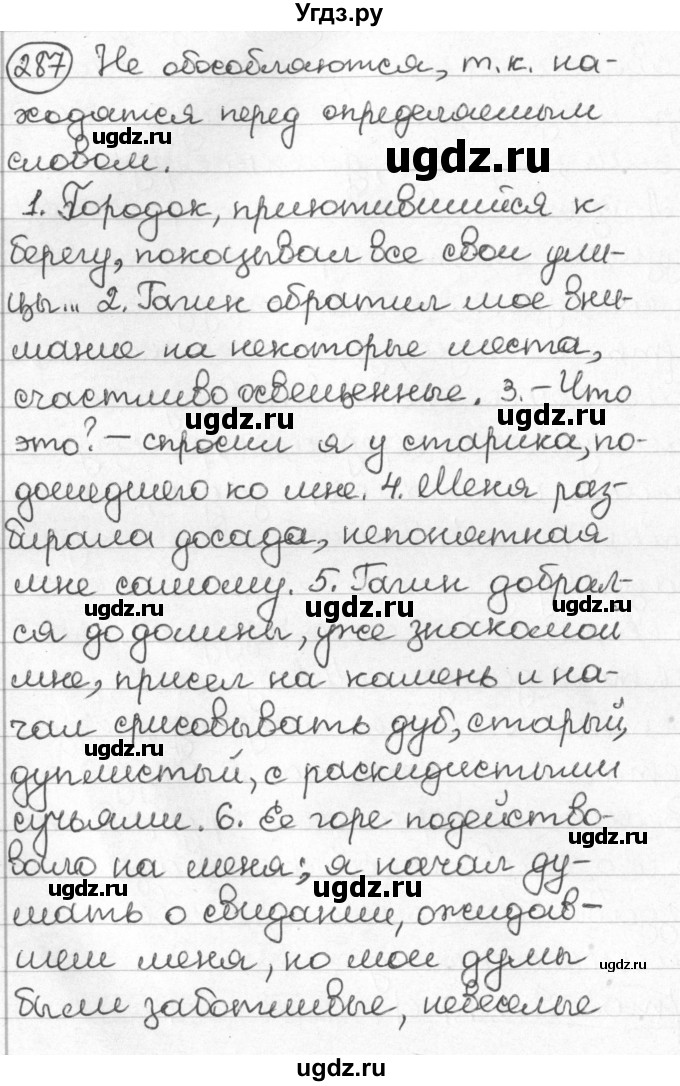 Угдз.ру
287 Не обособляются, т.к. на-
ходятся перед определяемым
ugdz.ru ugdz.ru
словом.
ugdz.ru
1. Городок, приютившийся к
берегу, показывал все свои ули-
цы... 2. Гагин обратил мое вни-
мание на некоторые места,
счастливо освещенные. 3. – Что
ugdz.ru ugdz.ru
это? – спросил я у старика, по-
дошедшего ко мне. 4. Меня раз-
бирала досада, непонятная
мне самому. 5. Гагин добрал-
ugdz.ru ugdz.ru ugdz.ru
ся до долины, уже знакомой
мне, присел на камень и на-
чал срисовывать дуб, старый,
ugdz.ru
дуплистый, с раскидистыми
сучьями. 6. Ее горе подейство-
ugdz.ru
вало на меня; я начал ду-
ugdz.ru ugdz.ru
мать о свидании, ожидав-
шем меня, но мои думы
ugdz.ru
были заботливые, невеселые
ugdz.ru